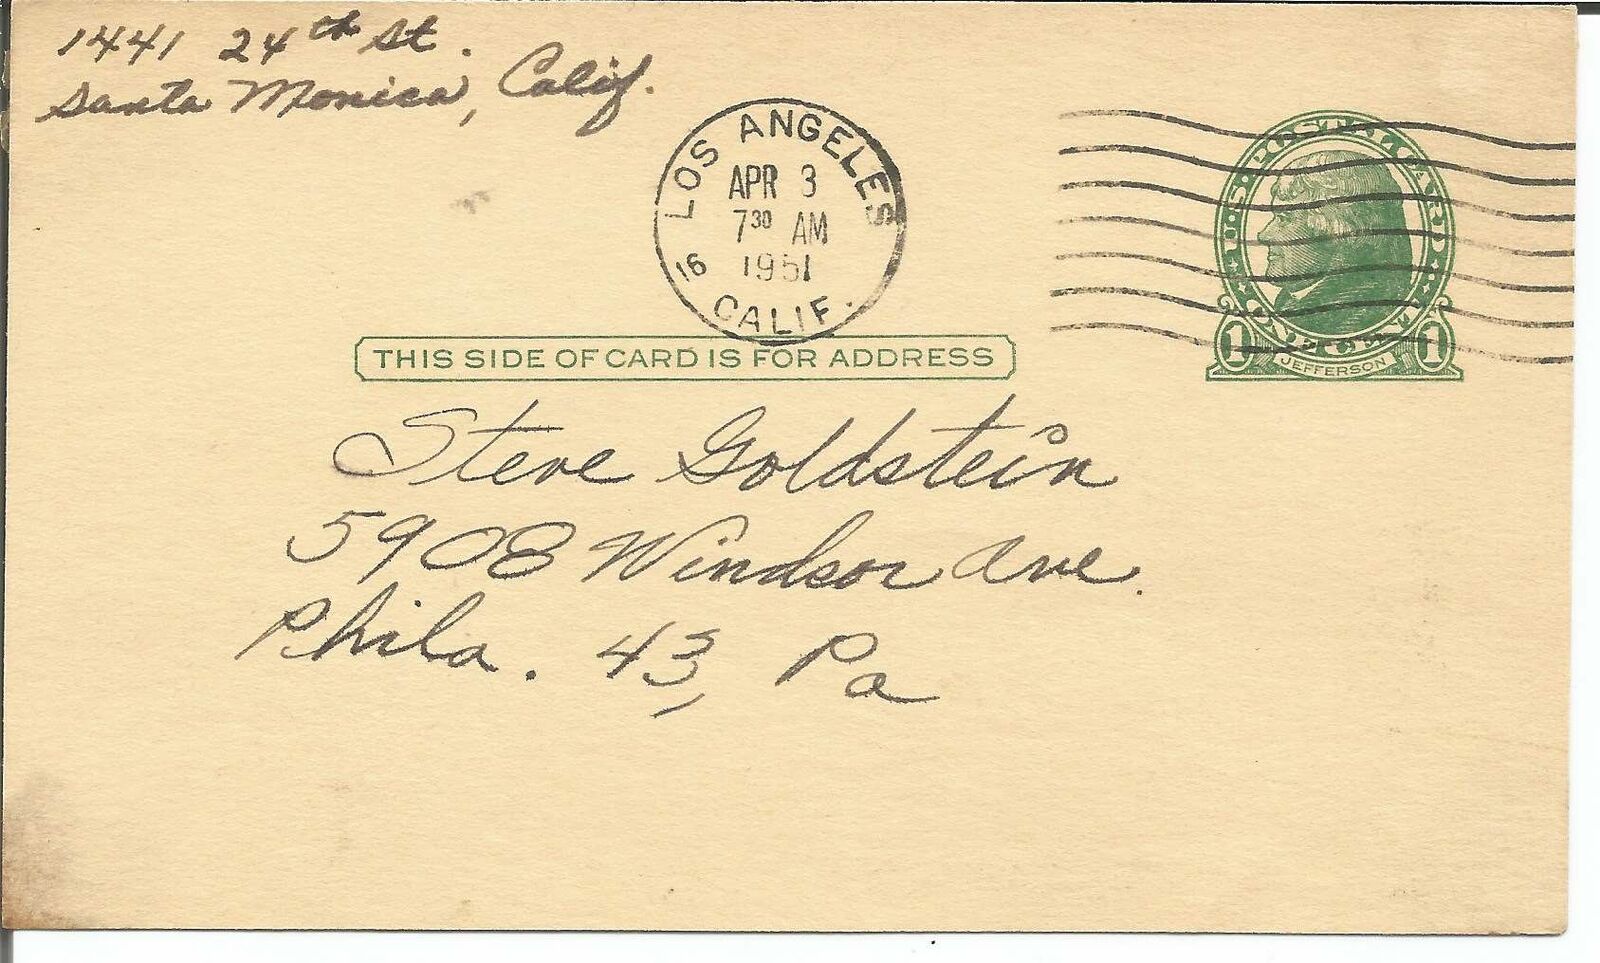 1441 24th St.
Santa Monica, Calif.
LOS ANGELES
APR 3
7 30 AM
1951
16
CALIF.
U.S. POSTAL CARD
1 1
JEFFERSON
THIS SIDE OF CARD IS FOR ADDRESS
Steve Goldstein
5908 Windsor Ave.
Phila. 43, Pa